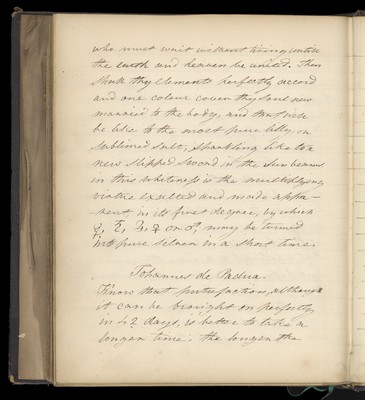 who must wait without tiring untill
the earth and heaven be united. Then
shall thy elements perfectly accord
and one colour cover thy soul new
married to the body, and that will
be like to the most pure lilly, or
sublimed salt, sparkling like to a
new slipped sword in the sun beams
in this whiteness is the multiplying
virtue exalted and made appa-
-rent in its first degree, by which
☿, ♄, ♃, ♀ or ♂ may be turned
into pure silver in a short time.
Johannes de Padua.
Know that putrefaction, although
it can be brought on perfectly
in 42 days, is better to take a
longer time; the longer the